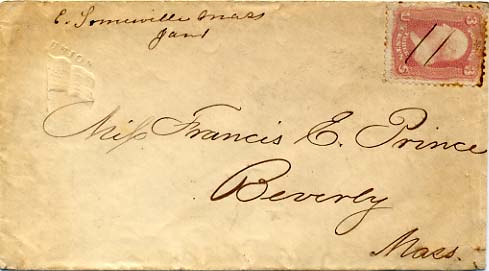 E. Somerville Mass
Jan 1
UNION
Miss Francis E. Prince
Beverly
Mass.